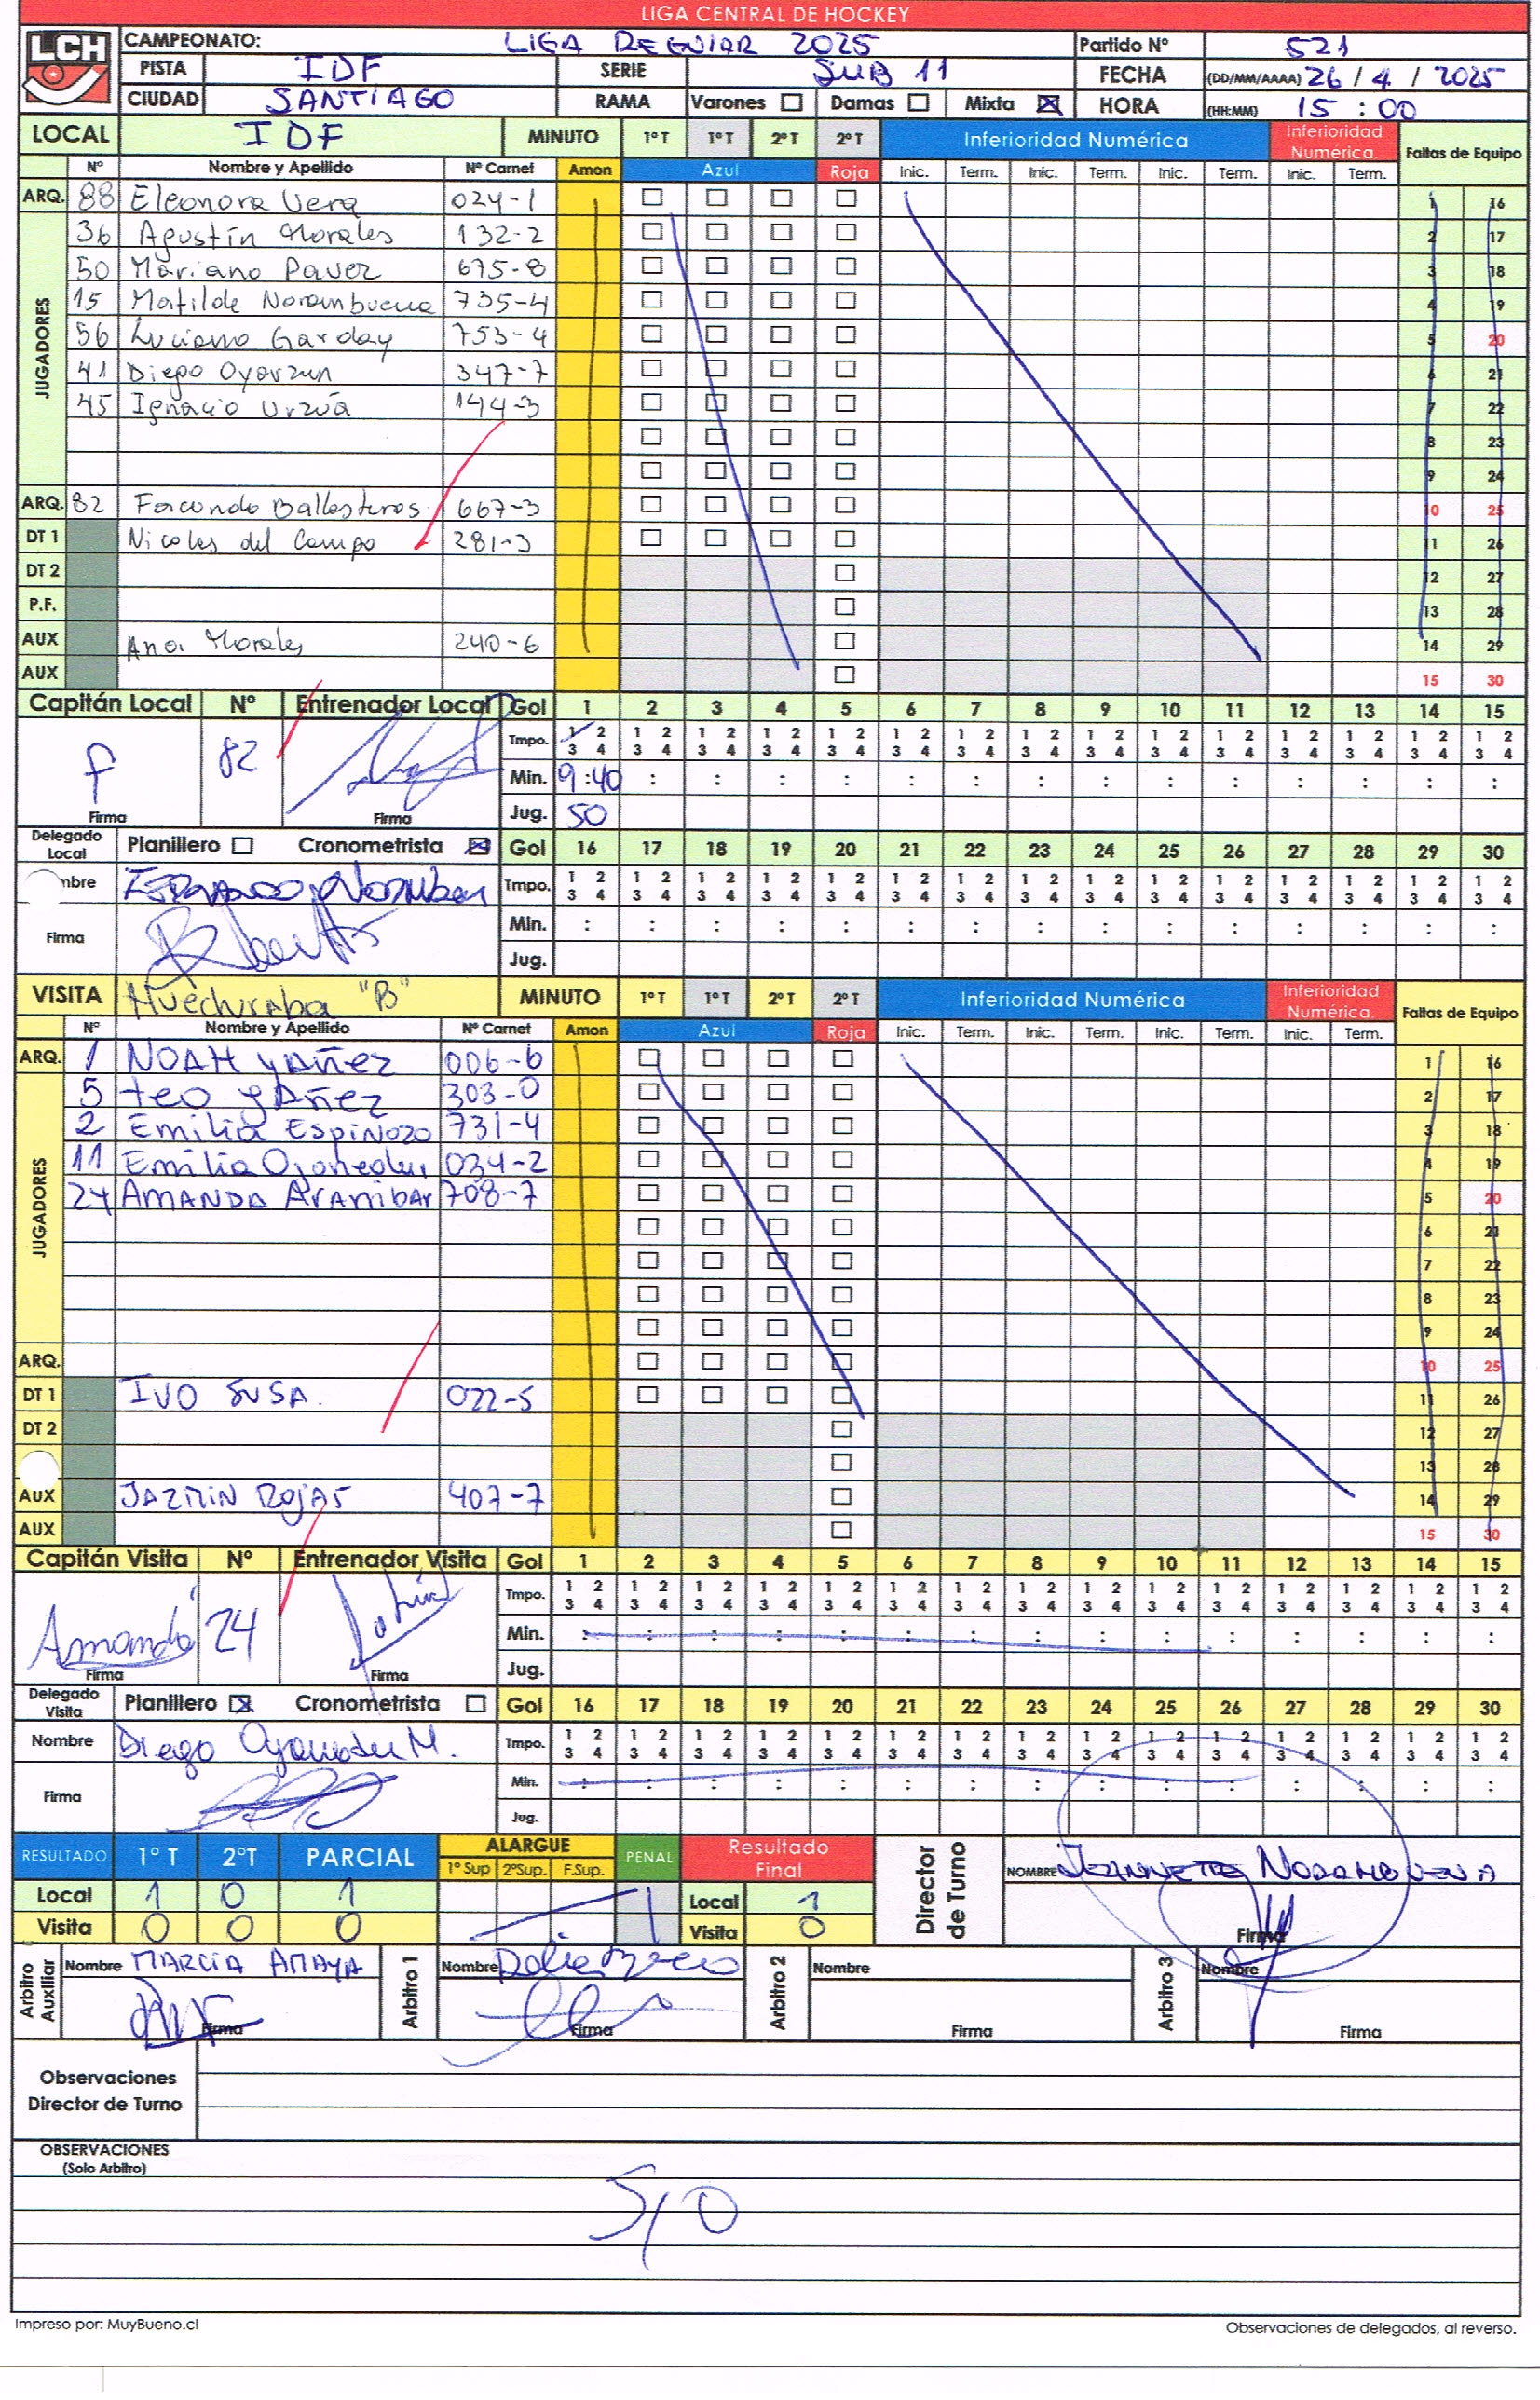 LIGA CENTRAL DE HOCKEY
LCH
CAMPEONATO: LIGA REGULAR 2025 Partido Nº 521
PISTA IDF SERIE SUB 11 FECHA (DD/MM/AAAA) 26 / 4 / 2025
CIUDAD SANTIAGO RAMA Varones Damas Mixta HORA (HH:MM) 15 : 00
LOCAL IDF MINUTO 1º T 1º T 2º T 2º T Inferioridad Numérica Inferioridad Numérica Faltas de Equipo
Nº Nombre y Apellido Nº Carnet Amon Azul Roja Inic. Term. Inic. Term. Inic. Term. Inic. Term.
ARQ. 88 Eleonora Vera 024-1 1 16
JUGADORES
36 Agustín Morales 132-2 2 17
50 Mariano Pavez 675-8 3 18
15 Matilde Norambuena 735-4 4 19
56 Luciano Garday 753-4 5 20
41 Diego Oyarzun 347-7 6 21
45 Ignacio Urzúa 144-3 7 22
8 23
9 24
ARQ. 82 Facundo Ballesteros 667-3 10 25
DT 1 Nicolas del Campo 281-3 11 26
DT 2 12 27
P.F. 13 28
AUX Ana Morales 240-6 14 29
AUX 15 30
Capitán Local Nº Entrenador Local Gol 1 2 3 4 5 6 7 8 9 10 11 12 13 14 15
Tmpo. 1 2 1 2 1 2 1 2 1 2 1 2 1 2 1 2 1 2 1 2 1 2 1 2 1 2 1 2 1 2
3 4 3 4 3 4 3 4 3 4 3 4 3 4 3 4 3 4 3 4 3 4 3 4 3 4 3 4 3 4
82 Min. 9:40 : : : : : : : : : : : : : :
Firma Firma Jug. 50
Delegado Local Planillero Cronometrista Gol 16 17 18 19 20 21 22 23 24 25 26 27 28 29 30
mbre Tmpo. 1 2 1 2 1 2 1 2 1 2 1 2 1 2 1 2 1 2 1 2 1 2 1 2 1 2 1 2 1 2
3 4 3 4 3 4 3 4 3 4 3 4 3 4 3 4 3 4 3 4 3 4 3 4 3 4 3 4 3 4
Firma Min. : : : : : : : : : : : : : : :
Jug.
VISITA Huechuraba "B" MINUTO 1º T 1º T 2º T 2º T Inferioridad Numérica Inferioridad Numérica Faltas de Equipo
Nº Nombre y Apellido Nº Carnet Amon Azul Roja Inic. Term. Inic. Term. Inic. Term. Inic. Term.
ARQ. 1 NOAH YAÑEZ 006-6 1 16
JUGADORES
5 teo YAÑEZ 303-0 2 17
2 Emilia Espinozo 731-4 3 18
11 Emilia Oyaneder 034-2 4 19
24 AMANDA Aranibar 708-7 5 20
6 21
7 22
8 23
9 24
ARQ. 10 25
DT 1 IVO SUSA. 022-5 11 26
DT 2 12 27
13 28
AUX JAZMIN ROJAS 407-7 14 29
AUX 15 30
Capitán Visita Nº Entrenador Visita Gol 1 2 3 4 5 6 7 8 9 10 11 12 13 14 15
Tmpo. 1 2 1 2 1 2 1 2 1 2 1 2 1 2 1 2 1 2 1 2 1 2 1 2 1 2 1 2 1 2
3 4 3 4 3 4 3 4 3 4 3 4 3 4 3 4 3 4 3 4 3 4 3 4 3 4 3 4 3 4
Amanda 24 Min. : : : : : : : : : : : : : : :
Firma Firma Jug.
Delegado Visita Planillero Cronometrista Gol 16 17 18 19 20 21 22 23 24 25 26 27 28 29 30
Nombre Diego Oyaneder M. Tmpo. 1 2 1 2 1 2 1 2 1 2 1 2 1 2 1 2 1 2 1 2 1 2 1 2 1 2 1 2 1 2
3 4 3 4 3 4 3 4 3 4 3 4 3 4 3 4 3 4 3 4 3 4 3 4 3 4 3 4 3 4
Firma Min. : : : : : : : : : : : : : : :
Jug.
RESULTADO 1º T 2ºT PARCIAL ALARGUE 1º Sup 2ºSup. F.Sup. PENAL Resultado Final Director de Turno NOMBRE JEANNETTE NORAMBUENA
Local 1 0 1 Local 1
Visita 0 0 0 Visita 0 Firma
Arbitro Auxiliar Nombre MARCIA AMAYA Arbitro 1 Nombre Arbitro 2 Nombre Arbitro 3 Nombre
Firma Firma Firma Firma
Observaciones
Director de Turno
OBSERVACIONES
(Solo Arbitro)
S/O
Impreso por: MuyBueno.cl Observaciones de delegados, al reverso.